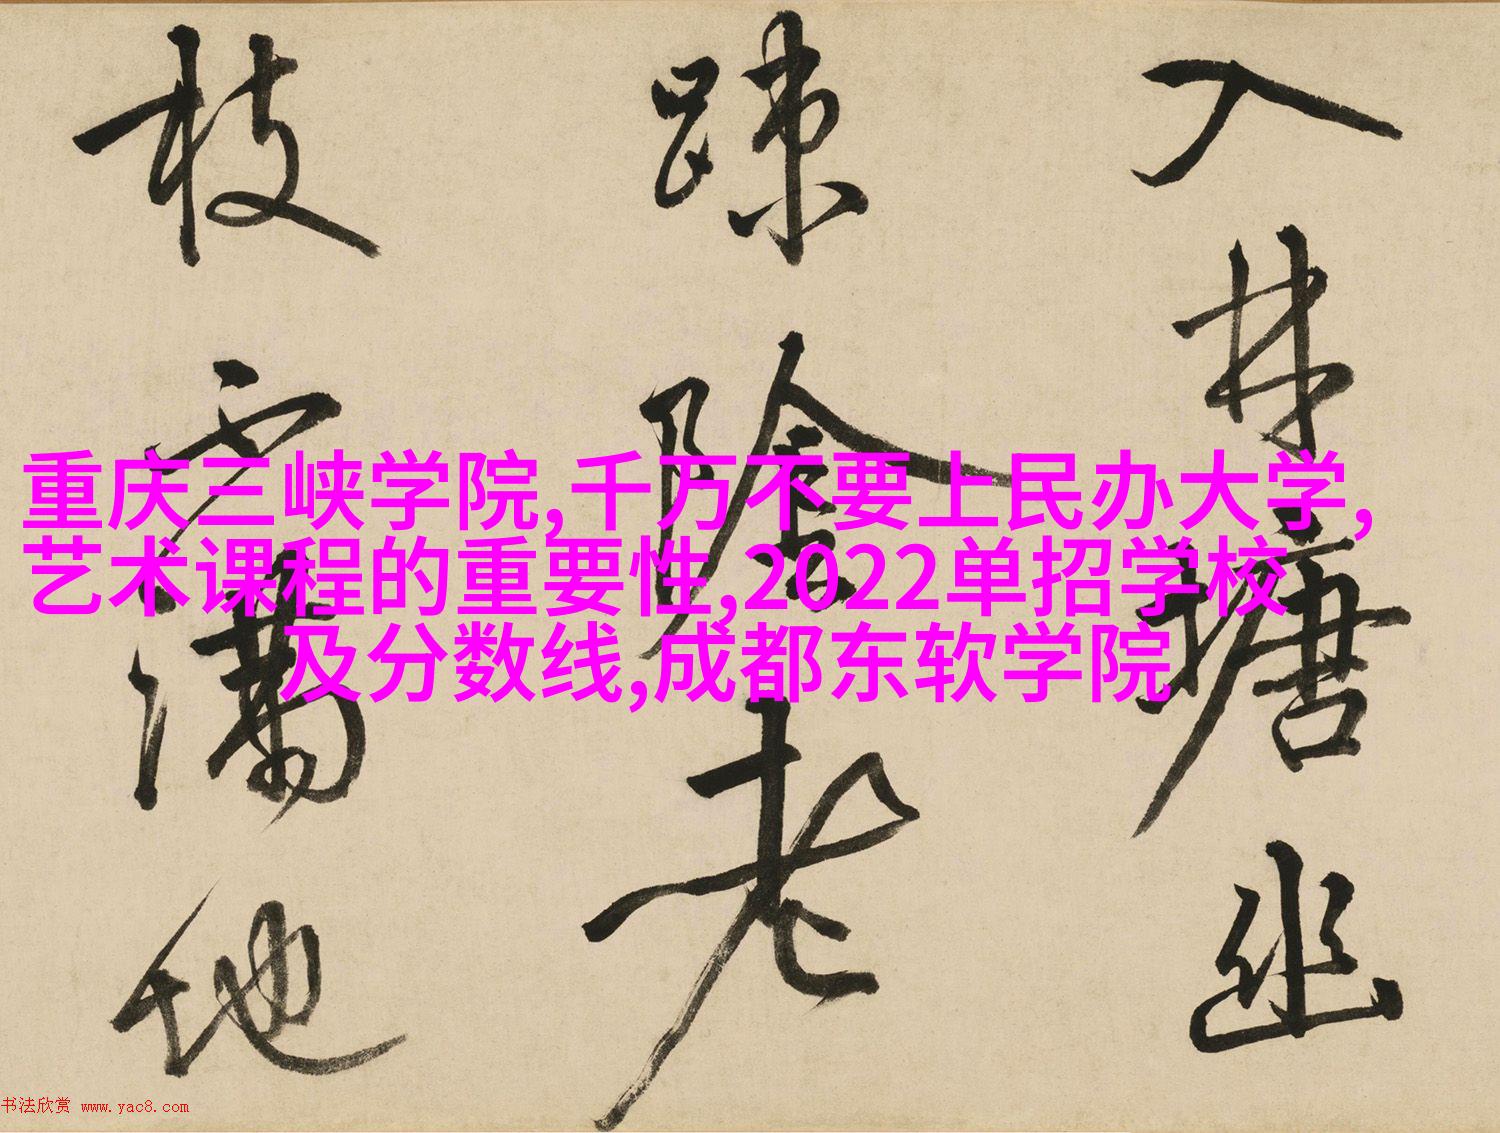 入林塘幽
踈陰老
枝霜滿地
重庆三峡学院,千万不要上民办大学,
艺术课程的重要性,2022单招学校
及分数线,成都东软学院
书法欣赏 www.yac8.com